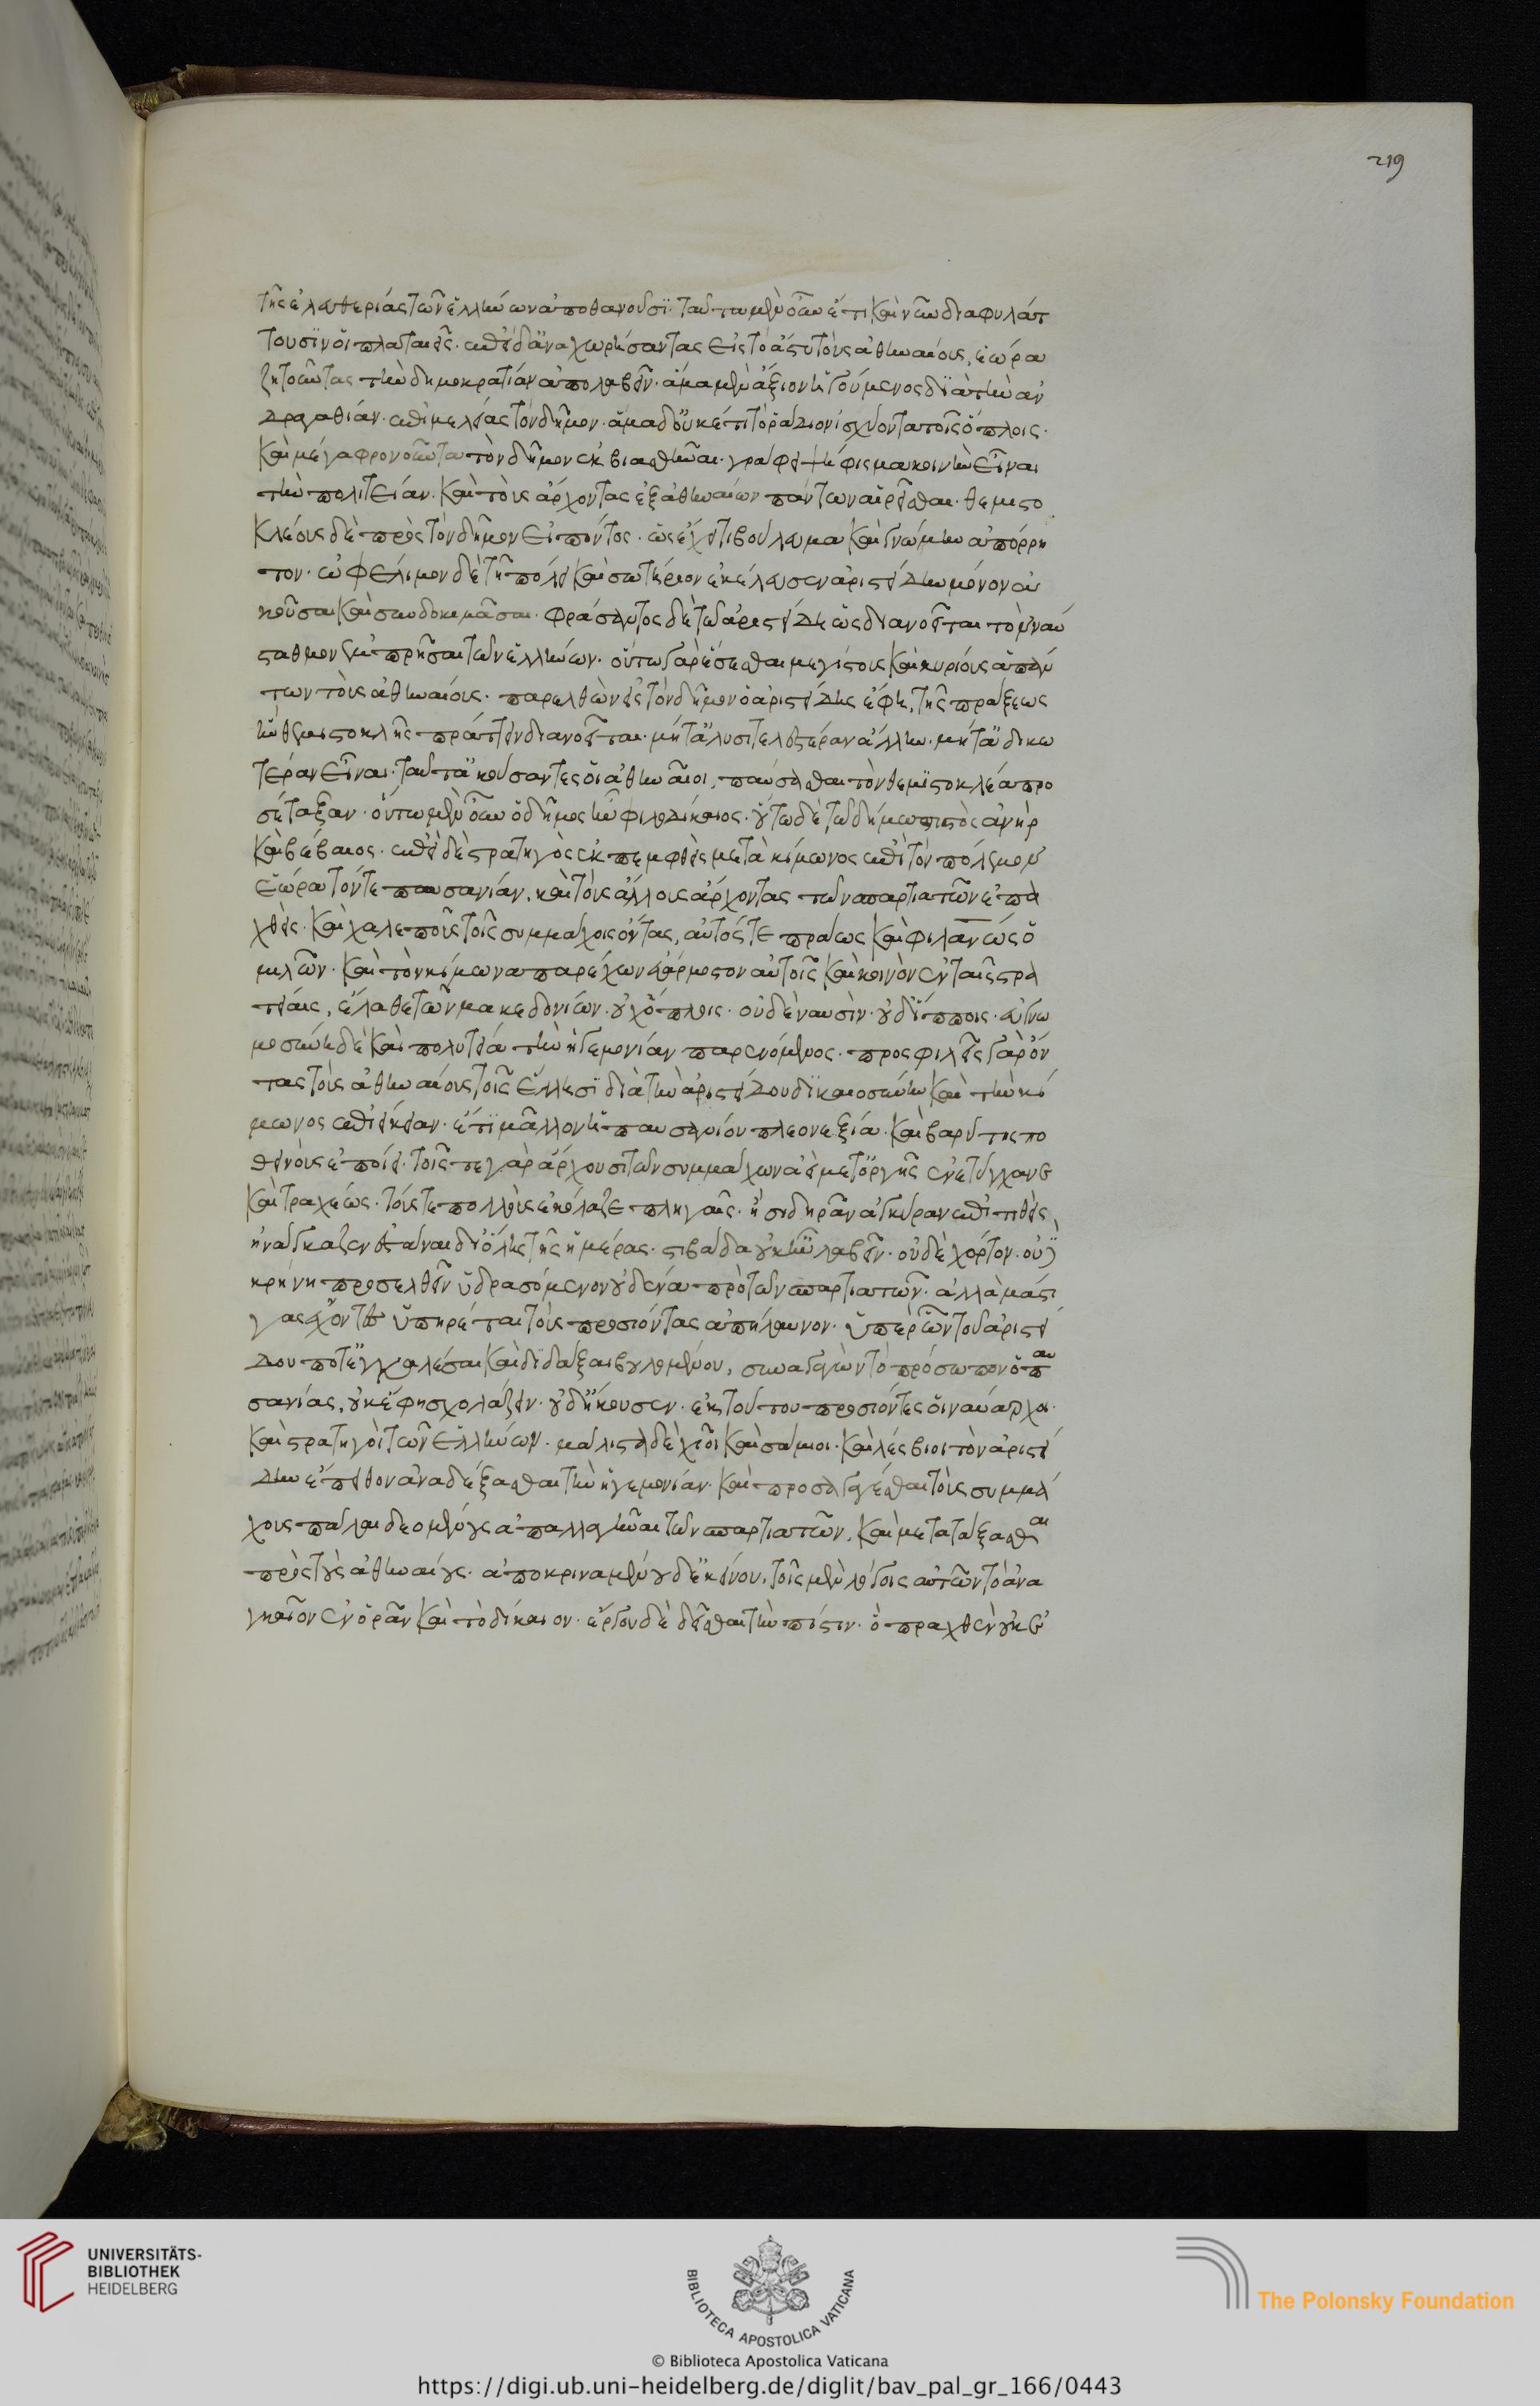 219
τῆς ἐλευθερίας τῶν ἑλλήνων ἀποθανοῦσι. ταῦτα μὲν οὖν ἔτι καὶ νῦν διαφυλάτ
τουσιν οἱ πλαταιεῖς. ἐπεὶ δ' ἀναχωρήσαντας εἰς τὸ ἄστυ τοὺς ἀθηναίους, ἑώρα
ζητοῦντας τὴν δημοκρατίαν ἀπολαβεῖν. ἅμα μὲν ἄξιον ἡγούμενος διὰ τὴν ἀν
δραγαθίαν. ἐπιμελείας τὸν δῆμον. ἅμα δ' οὐκέτι τὸ ῥάδιον ἰσχύοντα τοῖς ὅπλοις.
καὶ μέγα φρονοῦντα τὸν δῆμον ἐκβιασθῆναι. γράφει ψήφισμα κοινὴν εἶναι
τὴν πολιτείαν. καὶ τοὺς ἄρχοντας ἐξ ἀθηναίων πάντων αἱρεῖσθαι. θεμιστο
κλέους δὲ πρὸς τὸν δῆμον εἰπόντος. ὡς ἔχει τι βούλευμα καὶ γνώμην ἀπόρρη
τον. ὠφέλιμον δὲ τῇ πόλει καὶ σωτήριον ἐκέλευσεν ἀριστείδην μόνον ἀ
κοῦσαι καὶ συνδοκιμάσαι. φράσαντος δὲ τῷ ἀριστείδῃ ὡς διανοεῖται τὸν ναύ
σταθμον ἐμπρῆσαι τῶν ἑλλήνων. οὕτω γὰρ ἔσεσθαι μεγίστους καὶ κυρίους ἁπάν
των τοὺς ἀθηναίους. παρελθὼν εἰς τὸν δῆμον ὁ ἀριστείδης ἔφη, τῆς πράξεως
ἣν θεμιστοκλῆς πράττειν διανοεῖται. μήτε λυσιτελεστέραν ἄλλην. μήτ' ἀδικω
τέραν εἶναι. ταῦτ' ἀκούσαντες οἱ ἀθηναῖοι, παύσασθαι τὸν θεμιστοκλέα προ
σέταξαν. οὕτω μὲν οὖν ὁ δῆμος ἦν φιλοδίκαιος. οὕτω δὲ τῷ δήμῳ πιστὸς ἀνὴρ
καὶ βέβαιος. ἐπεὶ δὲ στρατηγὸς ἐκπεμφθεὶς μετὰ κίμωνος ἐπὶ τὸν πόλεμον
ἑώρα τόν τε παυσανίαν. καὶ τοὺς ἄλλους ἄρχοντας τῶν σπαρτιατῶν ἐπα
χθεῖς. καὶ χαλεποὺς τοῖς συμμάχοις ὄντας, αὐτός τε πράως καὶ φιλαν̅ως ὁ
μιλῶν. καὶ τὸν κίμωνα παρέχων εὐάρμοστον αὐτοῖς καὶ κοινὸν ἐν ταῖς στρα
τείαις, ἔλαθε τῶν μακεδονιῶν. οὐχ ὅπλοις. οὐδὲ ναυσὶν. οὐδ' ἵπποις. εὐγνω
μοσύνῃ δὲ καὶ πολιτείᾳ τὴν ἡγεμονίαν παρενόμενος. προσφιλεῖς γὰρ ὄν
τας τοὺς ἀθηναίους τοῖς ἕλλησι διὰ τὴν ἀριστείδου δικαιοσύνην καὶ τὴν κί
μωνος ἐπιείκειαν. ἔτι μᾶλλον ἡ παυσανίου πλεονεξία. καὶ βαρύτης πο
θεινοὺς ἐποίει. τοῖς τε γὰρ ἄρχουσι τῶν συμμάχων ἀεὶ μετ' ὀργῆς ἐνετύγχανε
καὶ τραχέως. τούς τε πολλοὺς ἐκόλαζε πληγαῖς. ἢ σιδηρᾶν ἄγκυραν ἐπιτιθεὶς
ἠνάγκαζεν ἑστάναι δι' ὅλης τῆς ἡμέρας. στιβάδα οὐκ ἦν λαβεῖν. οὐδὲ χόρτον. οὐ
κρήνῃ προσελθεῖν ὑδρασόμενον οὐδένα πρὸ τῶν σπαρτιατῶν. ἀλλὰ μάστι
γας ἔχοντες ὑπηρέται τοὺς προσιόντας ἀπήλαυνον. ὑπὲρ ὧν τοῦ ἀριστεί
δου ποτὲ ἐγκαλέσαι καὶ διδάξαι βουλομένου, συναγαγὼν τὸ πρόσωπον ὁ παυ
σανίας, οὐκ ἔφη σχολάζειν. οὐδ' ἤκουσεν. ἐκ τούτου προσιόντες οἱ ναύαρχοι.
καὶ στρατηγοὶ τῶν ἑλλήνων. μάλιστα δὲ χῖοι καὶ σάμιοι. καὶ λέσβιοι τὸν ἀριστεί
δην ἔπειθον ἀναδέξασθαι τὴν ἡγεμονίαν. καὶ προσαγαγέσθαι τοὺς συμμά
χους πάλαι δεομένους ἀπαλλαγῆναι τῶν σπαρτιατῶν. καὶ μετατάξασθαι
πρὸς τοὺς ἀθηναίους. ἀποκριναμένου δ' ἐκείνου. τοῖς μὲν λόγοις αὐτῶν τό ἀνα
γκαῖον ἐνορᾶν καὶ τὸ δίκαιον. ἔργου δὲ δεῖσθαι τὴν πίστιν. ὃ πραχθὲν οὐκ ἐ
UNIVERSITÄTS-
BIBLIOTHEK
HEIDELBERG
BIBLIOTECA APOSTOLICA VATICANA
The Polonsky Foundation
© Biblioteca Apostolica Vaticana
https://digi.ub.uni-heidelberg.de/diglit/bav_pal_gr_166/0443